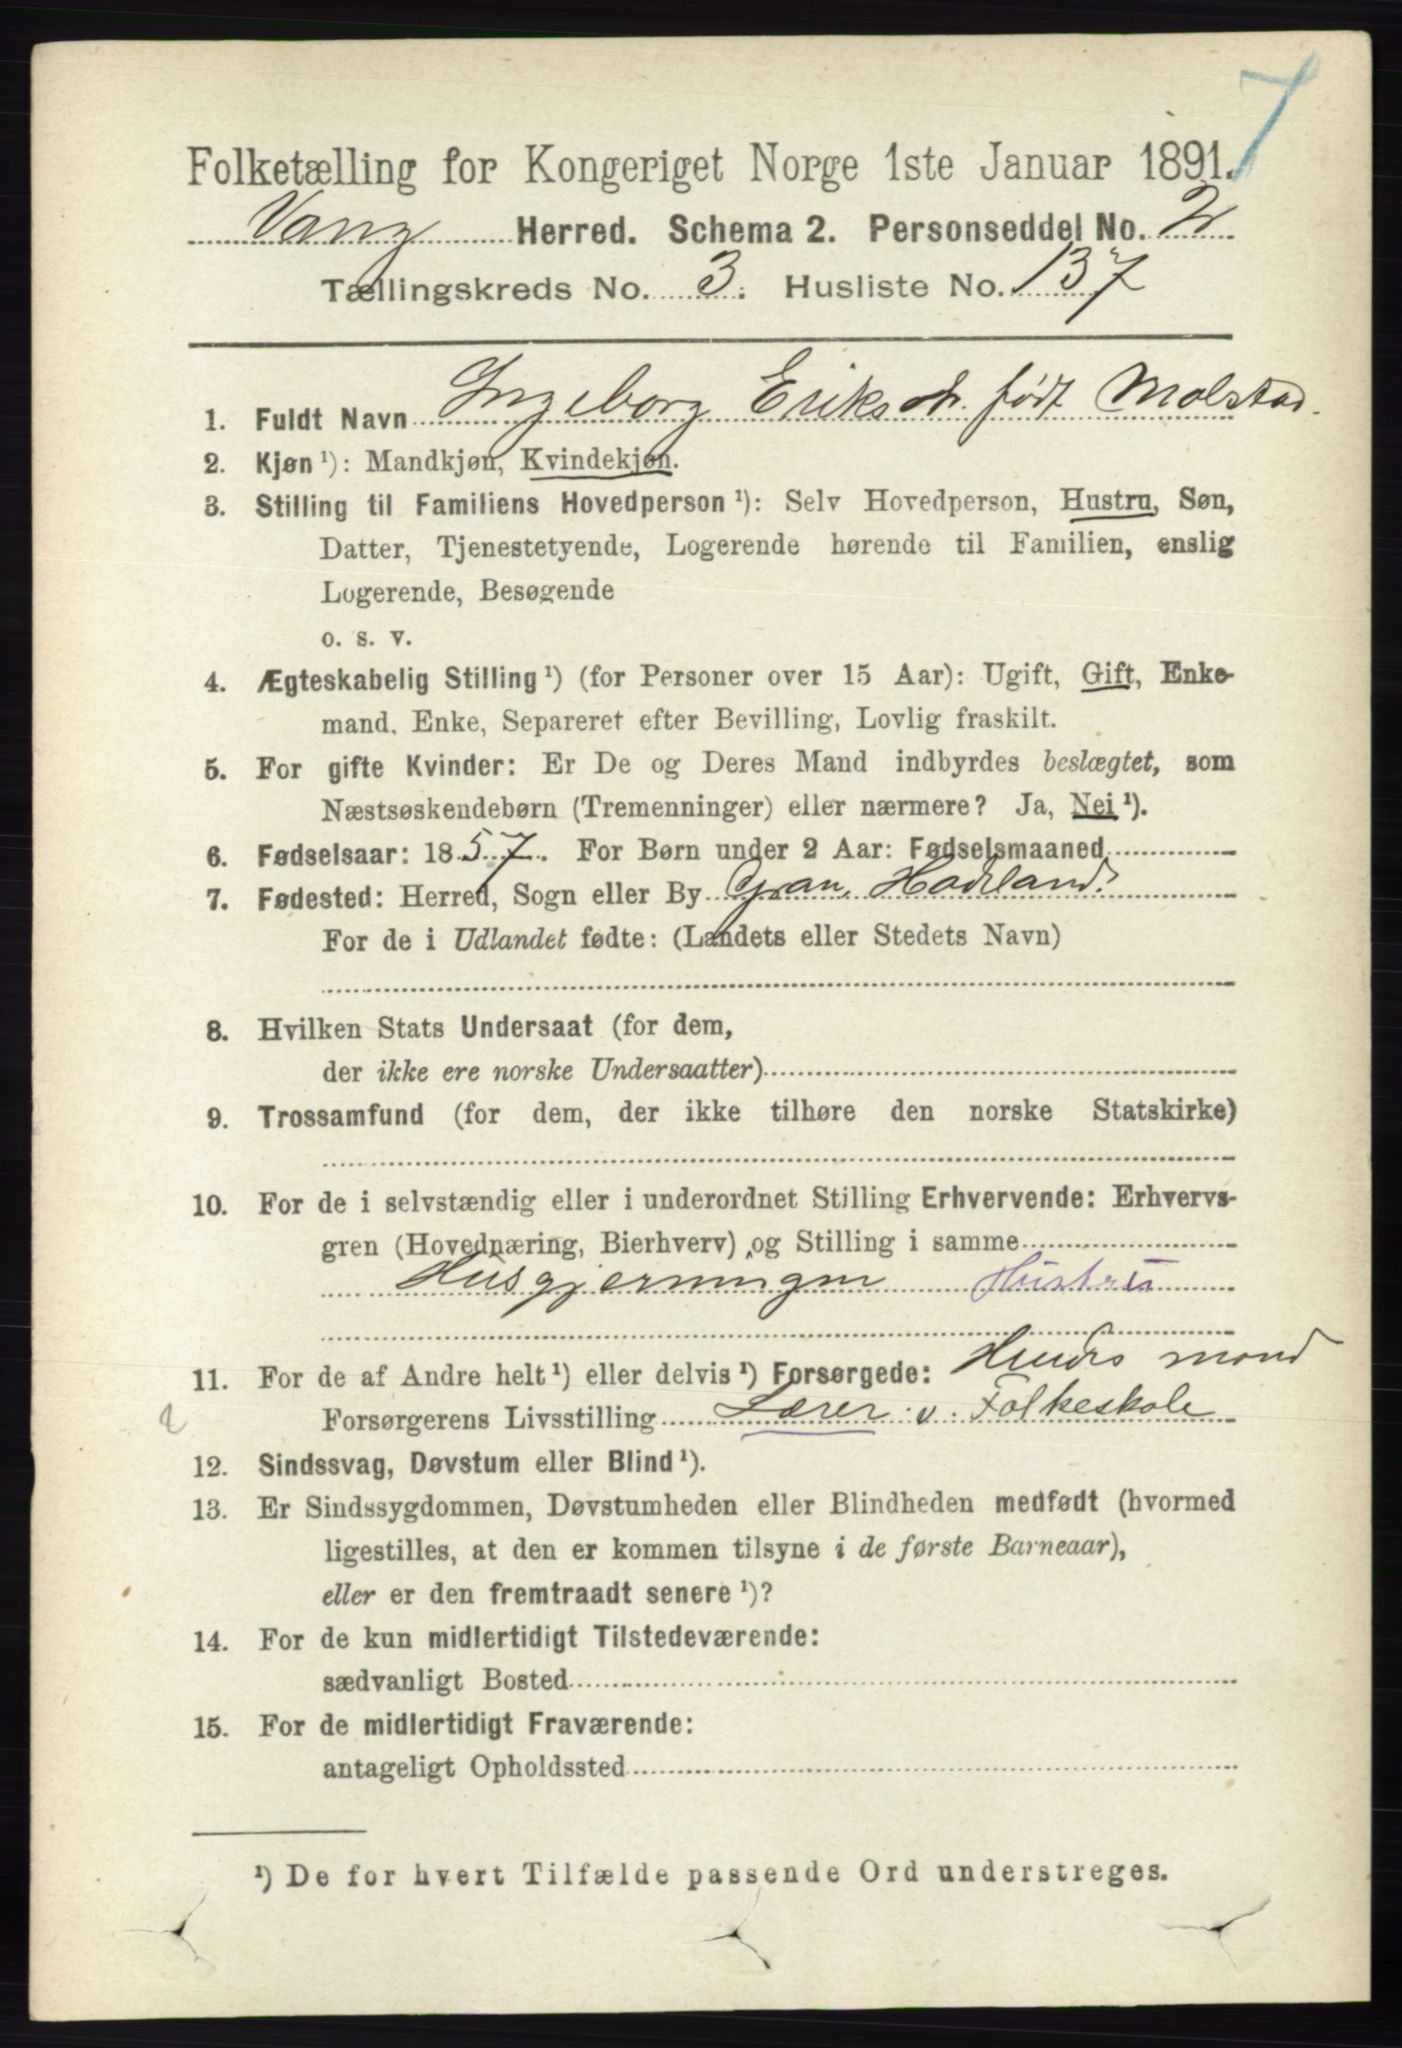 7
Folketælling for Kongeriget Norge 1ste Januar 1891.
Vang Herred. Schema 2. Personseddel No. 2
Tællingskreds No. 3. Husliste No. 137
1. Fuldt Navn Ingeborg Eriksdr. født Molstad.
2. Kjøn ¹): Mandkjøn, Kvindekjøn.
3. Stilling til Familiens Hovedperson ¹): Selv Hovedperson, Hustru, Søn,
Datter, Tjenestetyende, Logerende hørende til Familien, enslig
Logerende, Besøgende
o. s. v.
4. Ægteskabelig Stilling ¹) (for Personer over 15 Aar): Ugift, Gift, Enke-
mand, Enke, Separeret efter Bevilling, Lovlig fraskilt.
5. For gifte Kvinder: Er De og Deres Mand indbyrdes beslægtet, som
Næstsøskendebørn (Tremenninger) eller nærmere? Ja, Nei ¹).
6. Fødselsaar: 1857. For Børn under 2 Aar: Fødselsmaaned
7. Fødested: Herred, Sogn eller By Gran, Hadeland.
For de i Udlandet fødte: (Landets eller Stedets Navn)
8. Hvilken Stats Undersaat (for dem,
der ikke ere norske Undersaatter)
9. Trossamfund (for dem, der ikke tilhøre den norske Statskirke)
10. For de i selvstændig eller i underordnet Stilling Erhvervende: Erhvervs-
gren (Hovednæring, Bierhverv) og Stilling i samme
Husgjerningen Hustru
11. For de af Andre helt ¹) eller delvis ¹) Forsørgede: Hendes mand
Forsørgerens Livsstilling Lærer v. Folkeskole
2
12. Sindssvag, Døvstum eller Blind ¹).
13. Er Sindssygdommen, Døvstumheden eller Blindheden medfødt (hvormed
ligestilles, at den er kommen tilsyne i de første Barneaar),
eller er den fremtraadt senere ¹)?
14. For de kun midlertidigt Tilstedeværende:
sædvanligt Bosted
15. For de midlertidigt Fraværende:
antageligt Opholdssted
¹) De for hvert Tilfælde passende Ord understreges.